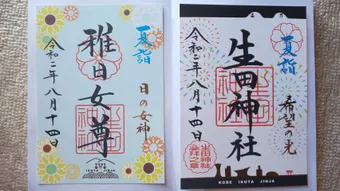 夏詣
稚日女尊
日の女神
令和二年八月十四日
夏詣
生田神社
希望の光
令和二年八月十四日
KOBE IKUTA JINJA